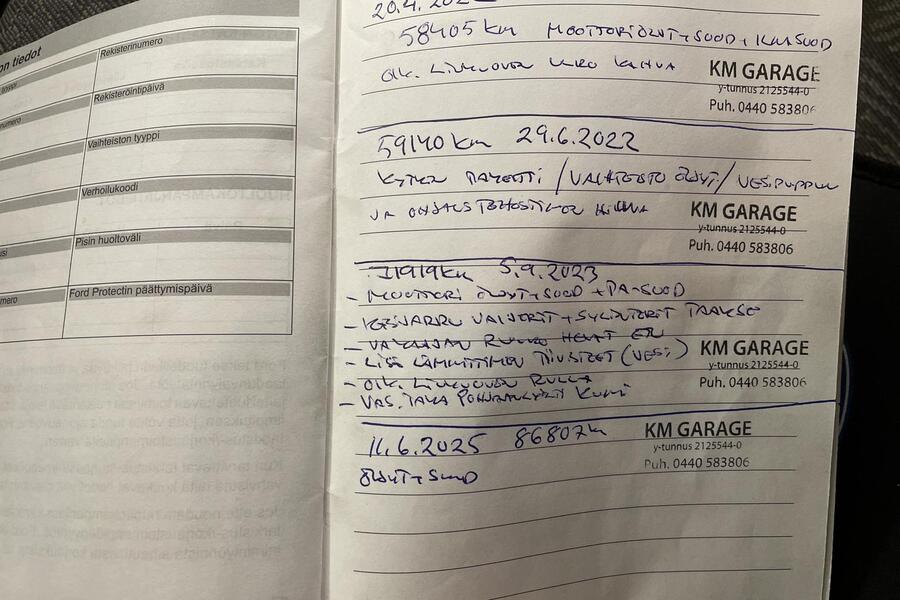 on tiedot
Rekisterinumero
Rekisteröintipäivä
Vaihteiston tyyppi
Verhoilukoodi
Pisin huoltoväli
Ford Protectin päättymispäivä
58405 km MOOTTORIÖLJYT+SUOD+ILM.SUOD
OIK. LIUKUOVEN ULKO KAHVA
KM GARAGE
y-tunnus 2125544-0
Puh. 0440 583806
59140 km 29.6.2022
KYTKIN PAKETTI / VAIHTEISTO ÖLJYT / VESIPUMPPU
JA OHJAUSTEHOSTIMEN HIHNA
KM GARAGE
y-tunnus 2125544-0
Puh. 0440 583806
71919 km 5.9.2023
- MOOTTORI ÖLJYT+SUOD + PA-SUOD
- KÄSIJARRU VAIJERIT + SYLINTERIT TAAKSE
- LISÄ LÄMMITTIMEN TIIVISTEET (VESI)
- OIK. LIUKUOVEN RULLA
- VAS. TAKA
KM GARAGE
y-tunnus 2125544-0
Puh. 0440 583806
11.6.2025 86807 km
ÖLJYT+SUOD
KM GARAGE
y-tunnus 2125544-0
Puh. 0440 583806